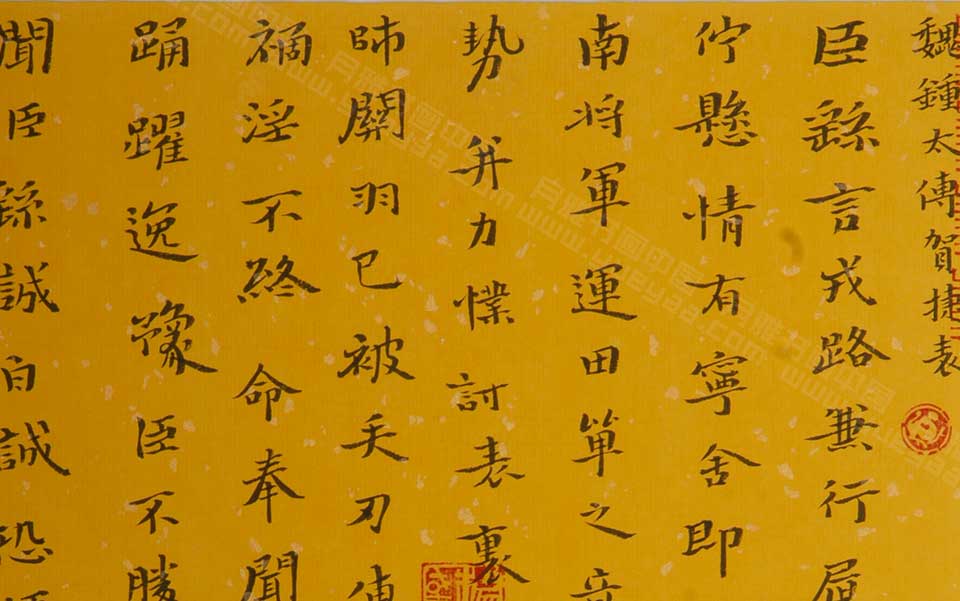 魏鍾太傅賀捷表
臣繇言戎路兼行履
佇懸情有寧舍即
南将軍運田單之奇
勢并力㦨討表裏
師關羽已被矢刃傅
禍淫不終命奉聞
踊躍逸豫臣不勝
聞臣繇誠自誠恐